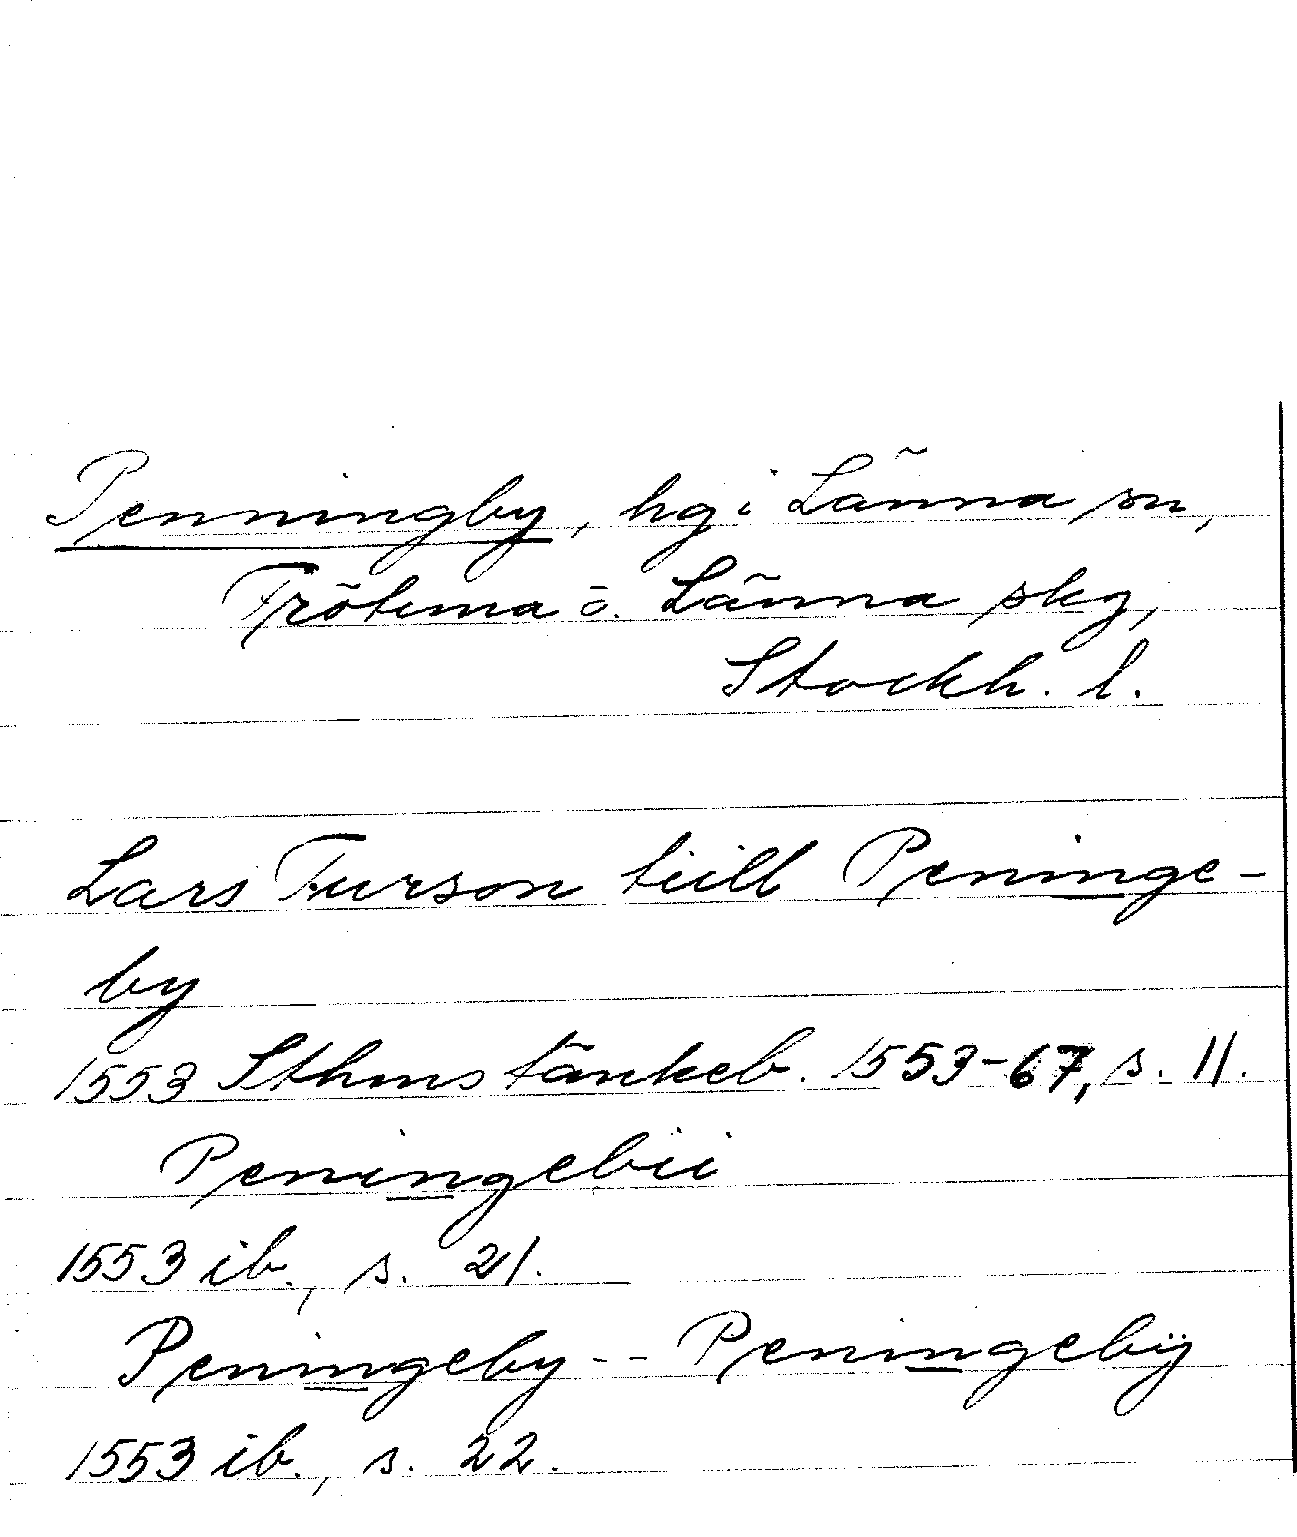 Penningby, hg i Länna sn,
Frötuna o. Länna skg,
Stockh. l.
Lars Turson tiill Peninge-
by
1553 Sthms tänkeb. 1553-67, s. 11.
Peningebii
1553 ib., s. 21.
Peningeby -- Peningebÿ
1553 ib., s. 22.